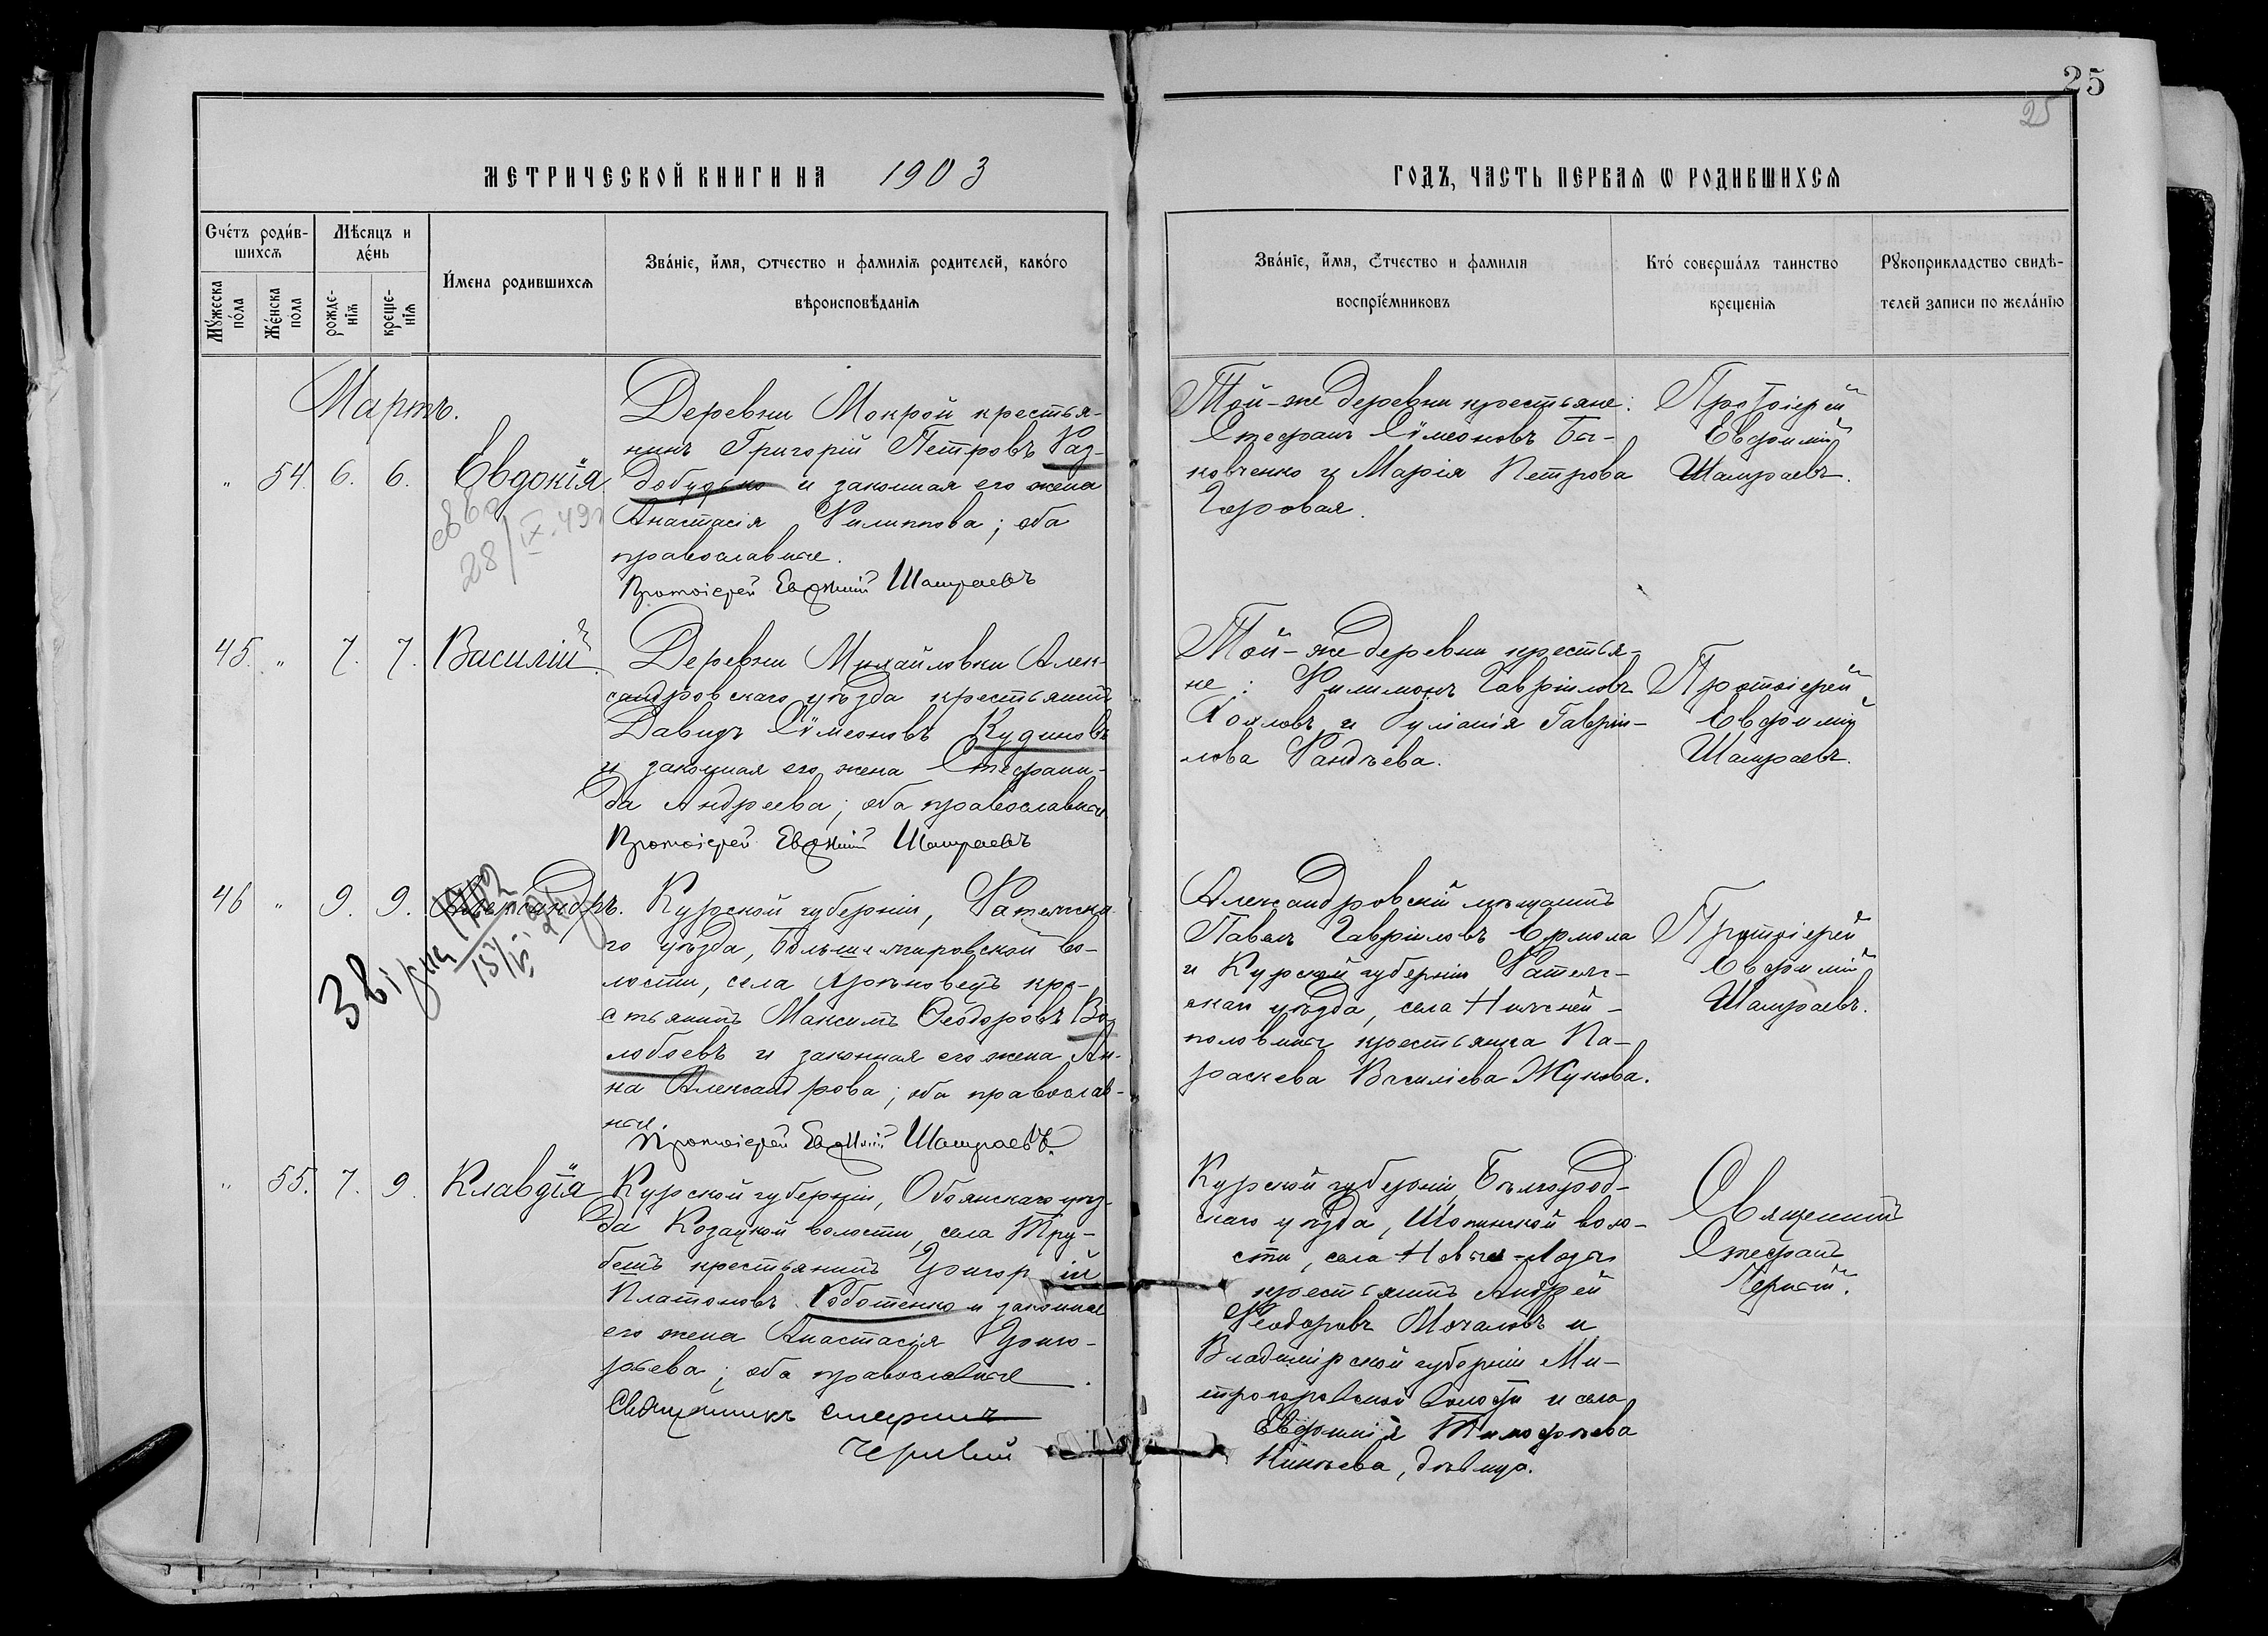 25
25
МЕТРИЧЕСКОЙ КНИГИ НА 1903
ГОДЪ, ЧАСТЬ ПЕРВАЯ Ѡ РОДИВШИХСЯ
Счétъ роди́в-
шихся
Мѣсяцъ и
дéнь
И́мена родившихся
Звáніе, и́мя, отчество и фамилія родителей, какóго
вѣроисповѣданія
Мýжеска
пóла
Жéнска
пóла
рожде-
нія
креще-
нія
Звáніе, и́мя, óтчество и фамилія
воспріéмниковъ
Ктó совершáлъ таинство
крещенія
Рукоприкладство свидѣ-
телей записи по желáнію
Мартъ.
" 54. 6. 6. Евдокія
Деревни Мокрой крестья-
нинъ Григорій Петровъ Раз-
добудько и законная его жена
Анастасія Филиппова; оба
православные.
Протоіерей Евфимій Шамраевъ
28/IX.49г
Той-же деревни крестьяне:
Стефанъ Сѵмеоновъ Ба-
ковченко и Марія Петрова
Черовая.
Протоіерей
Евфимій
Шамраевъ.
45. " 7. 7. Василій.
Деревни Михайловки Алек-
сандровскаго уѣзда крестьянинъ
Давидъ Сѵмеоновъ Кудиновъ
и законная его жена Стефани-
да Андреева; оба православные
Протоіерей Евфимій Шамраевъ
Той-же деревни крестья-
не: Филимонъ Гавріиловъ
Козловъ и Гавріи-
лова Фандѣева.
Протоіерей
Евфимій
Шамраевъ.
46 " 9. 9. Александръ.
Курской губерніи, Фатежска-
го уѣзда, Больше-жировской во-
лости, села кре-
стьянинъ Максимъ Ѳеодоровъ Во-
лобоевъ и законная его жена Ан-
на Александрова; оба православ-
ные.
Протоіерей Евфимій Шамраевъ.
Александровскій мѣщанинъ
Павелъ Гавріиловъ Ермола
и Курской губерніи Фатеж-
скаго уѣзда, села Нижней-
крестьянка Па-
раскева Василіева Жукова.
Протоіерей
Евфимій
Шамраевъ.
" 55. 7. 9. Клавдія
Курской губерніи, Обоянскаго уѣз-
да Козацкой волости, села Тру-
бежъ крестьянинъ Григорій
Платоновъ Соботенко и законная
его жена Анастасія Григо-
рьева; оба православные.
Священникъ Стефанъ
Черный
Курской губерніи Бѣлгород-
скаго уѣзда, Шопинской воло-
сти, села Новые-Лозы
крестьянинъ Андрей
Ѳеодоровъ Мочаловъ и
Владимірской губерніи Ми-
волости и села
Евфимія Тимофѣева
дѣвица.
Священникъ
Стефанъ
Черный.